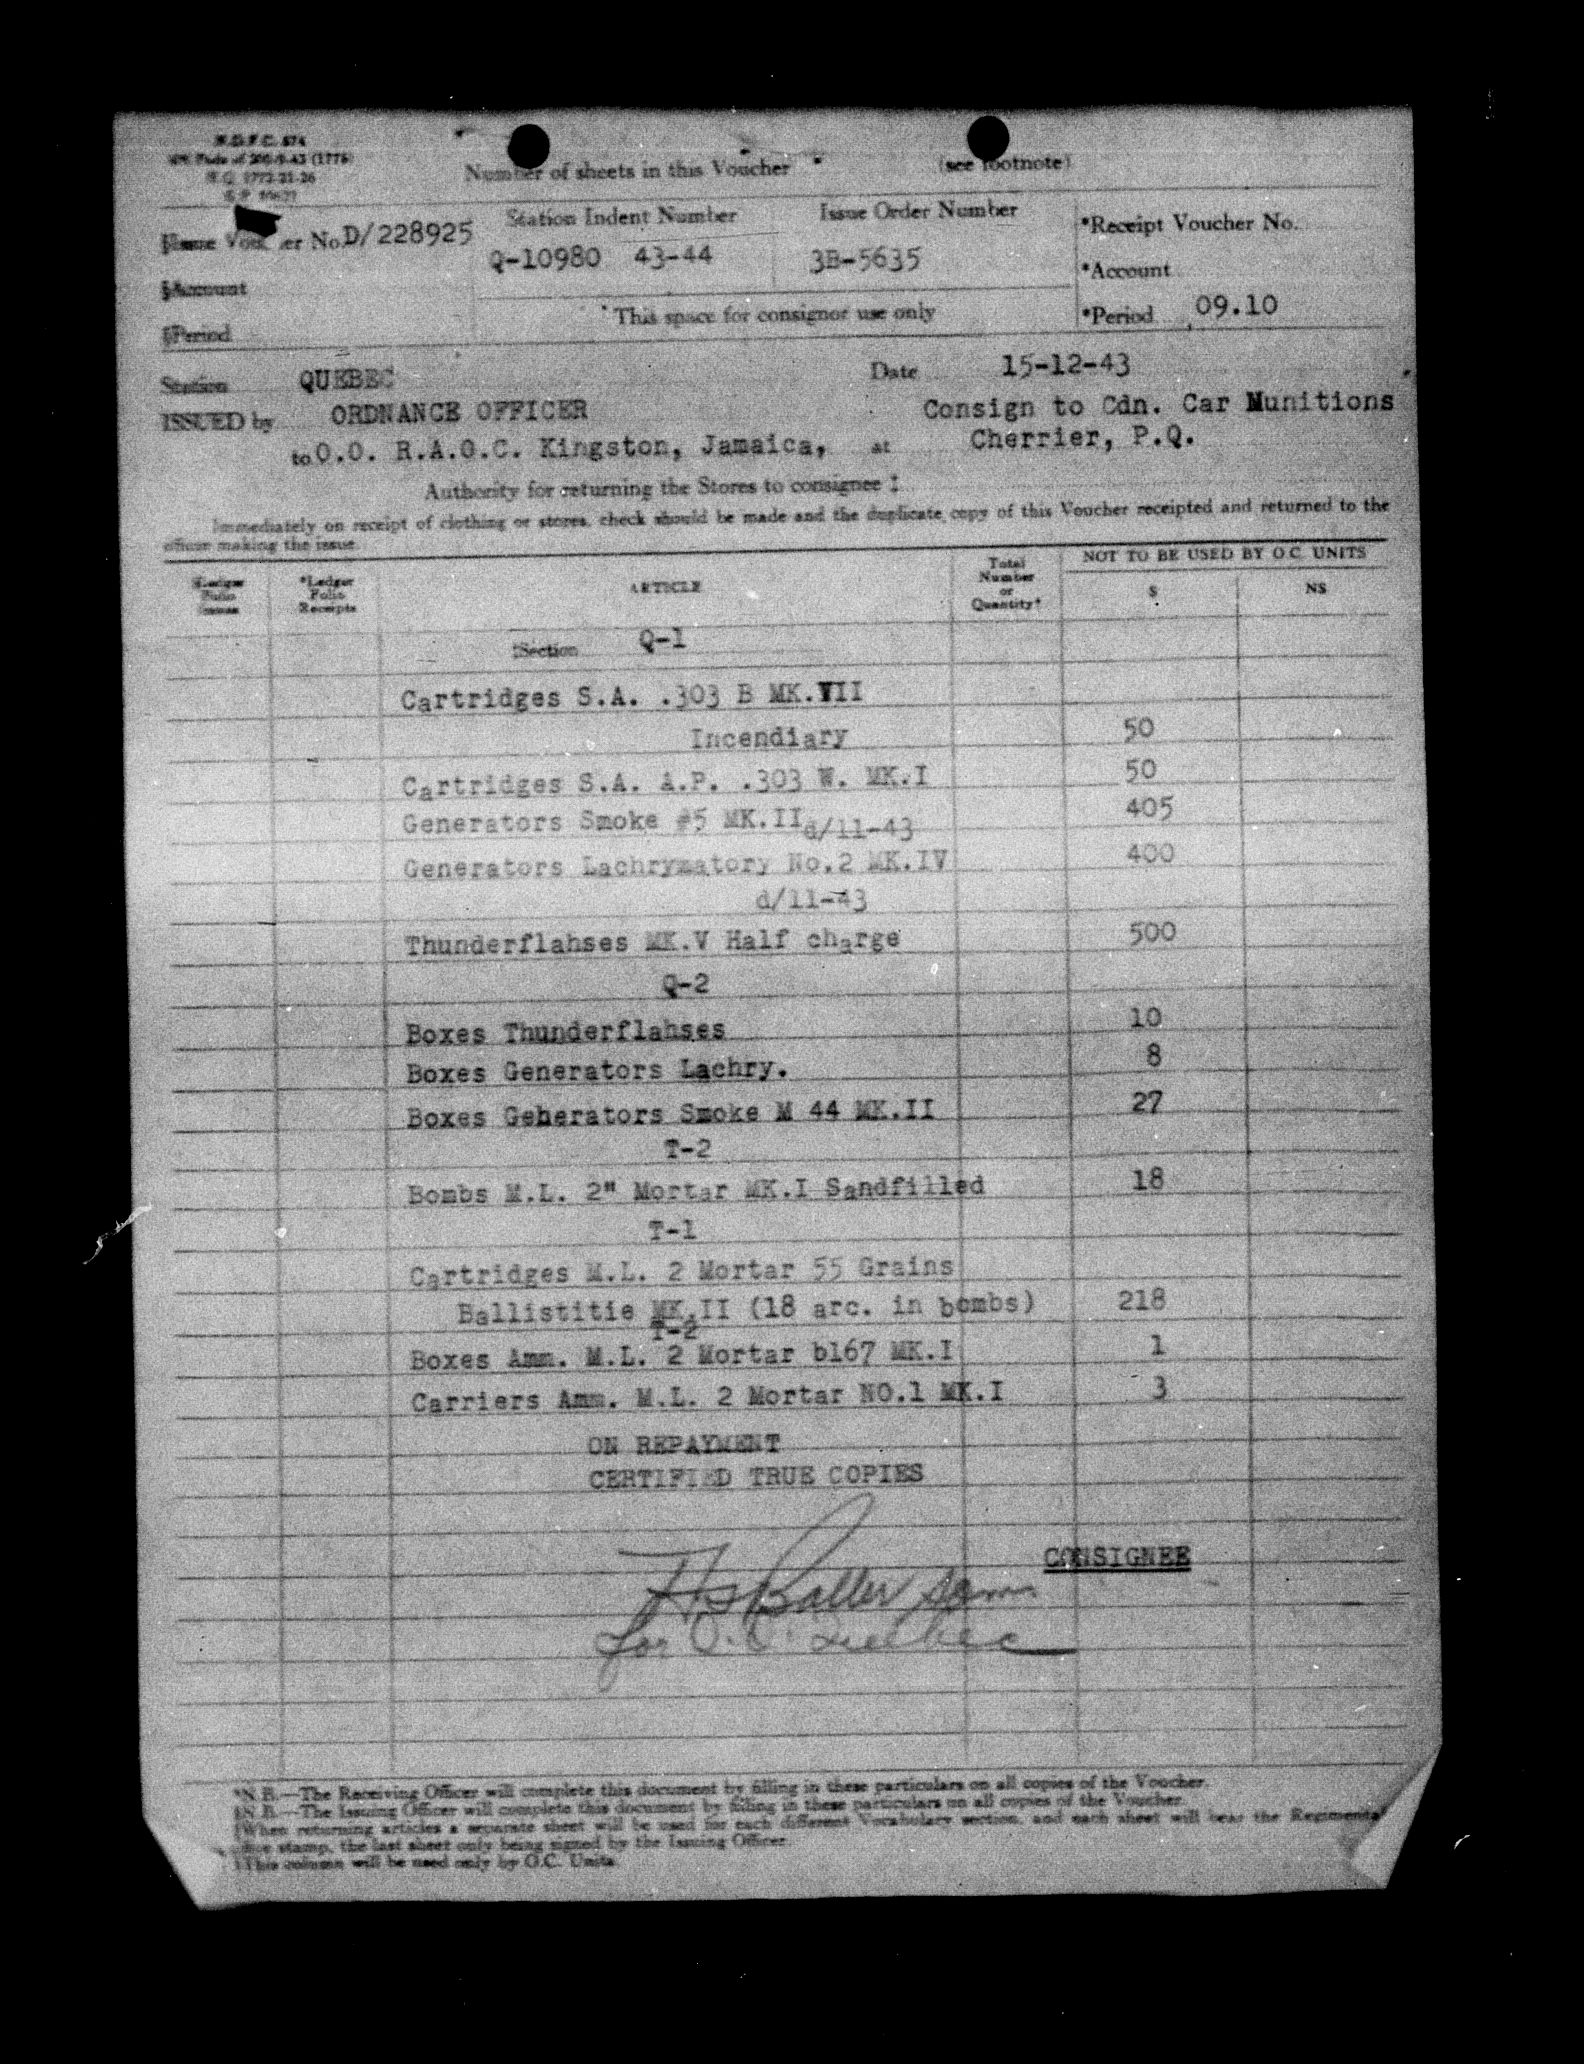 N.D.F.C. 574
Number of sheets in this Voucher (see footnote)
Issue Voucher No. D/228925
Station Indent Number
Issue Order Number
*Receipt Voucher No.
Q-10980 43-44
3B-5635
§Account
*Account
This space for consignor use only
§Period
*Period 09.10
Station QUEBEC Date 15-12-43
ISSUED by ORDNANCE OFFICER Consign to Cdn. Car Munitions
to O.O. R.A.O.C. Kingston, Jamaica, at Cherrier, P.Q.
Authority for returning the Stores to consignee ‡
Immediately on receipt of clothing or stores, check should be made and the duplicate copy of this Voucher receipted and returned to the
officer making the issue.
§Ledger Folio Issues
*Ledger Folio Receipts
ARTICLE
Total Number or Quantity†
NOT TO BE USED BY O.C. UNITS
S NS
‡Section Q-1
Cartridges S.A. .303 B MK.VII
Incendiary 50
Cartridges S.A. A.P. .303 W. MK.I 50
Generators Smoke #5 MK.II d/11-43 405
Generators Lachrymatory No.2 MK.IV 400
d/11-43
Thunderflahses MK.V Half charge 500
Q-2
Boxes Thunderflahses 10
Boxes Generators Lachry. 8
Boxes Geherators Smoke M 44 MK.II 27
T-2
Bombs M.L. 2" Mortar MK.I Sandfilled 18
T-1
Cartridges M.L. 2 Mortar 55 Grains
Ballistitie MK.II (18 arc. in bombs) 218
T-2
Boxes Amm. M.L. 2 Mortar b167 MK.I 1
Carriers Amm. M.L. 2 Mortar NO.1 MK.I 3
ON REPAYMENT
CERTIFIED TRUE COPIES
CONSIGNEE
for O.O. Quebec
*N.B.—The Receiving Officer will complete this document by filling in these particulars on all copies of the Voucher.
§N.B.—The Issuing Officer will complete this document by filling in these particulars on all copies of the Voucher.
‡When returning articles a separate sheet will be used for each different Vocabulary section, and each sheet will bear the Regimental
office stamp, the last sheet only being signed by the Issuing Officer.
†This column will be used only by O.C. Units.